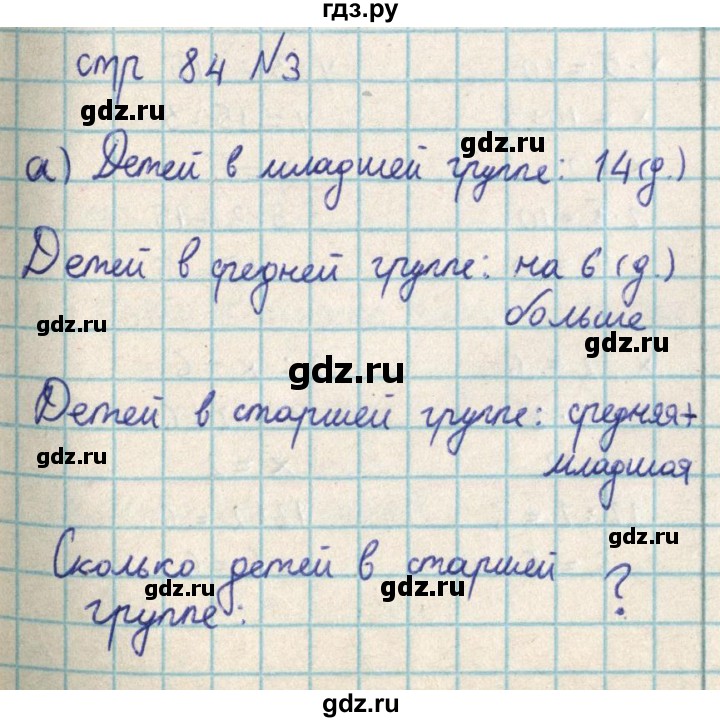 гдз.ру
стр 84 №3
gdz.ru
gdz.ru
а) Детей в младшей группе: 14(д.)
Детей в средней группе: на 6 (д.)
больше
gdz.ru
gdz.ru
gdz.ru
Детей в старшей группе: средняя+
младшая
gdz.ru
gdz.ru
Сколько детей в старшей
группе: ?
gdz.ru
gdz.ru
gdz.ru